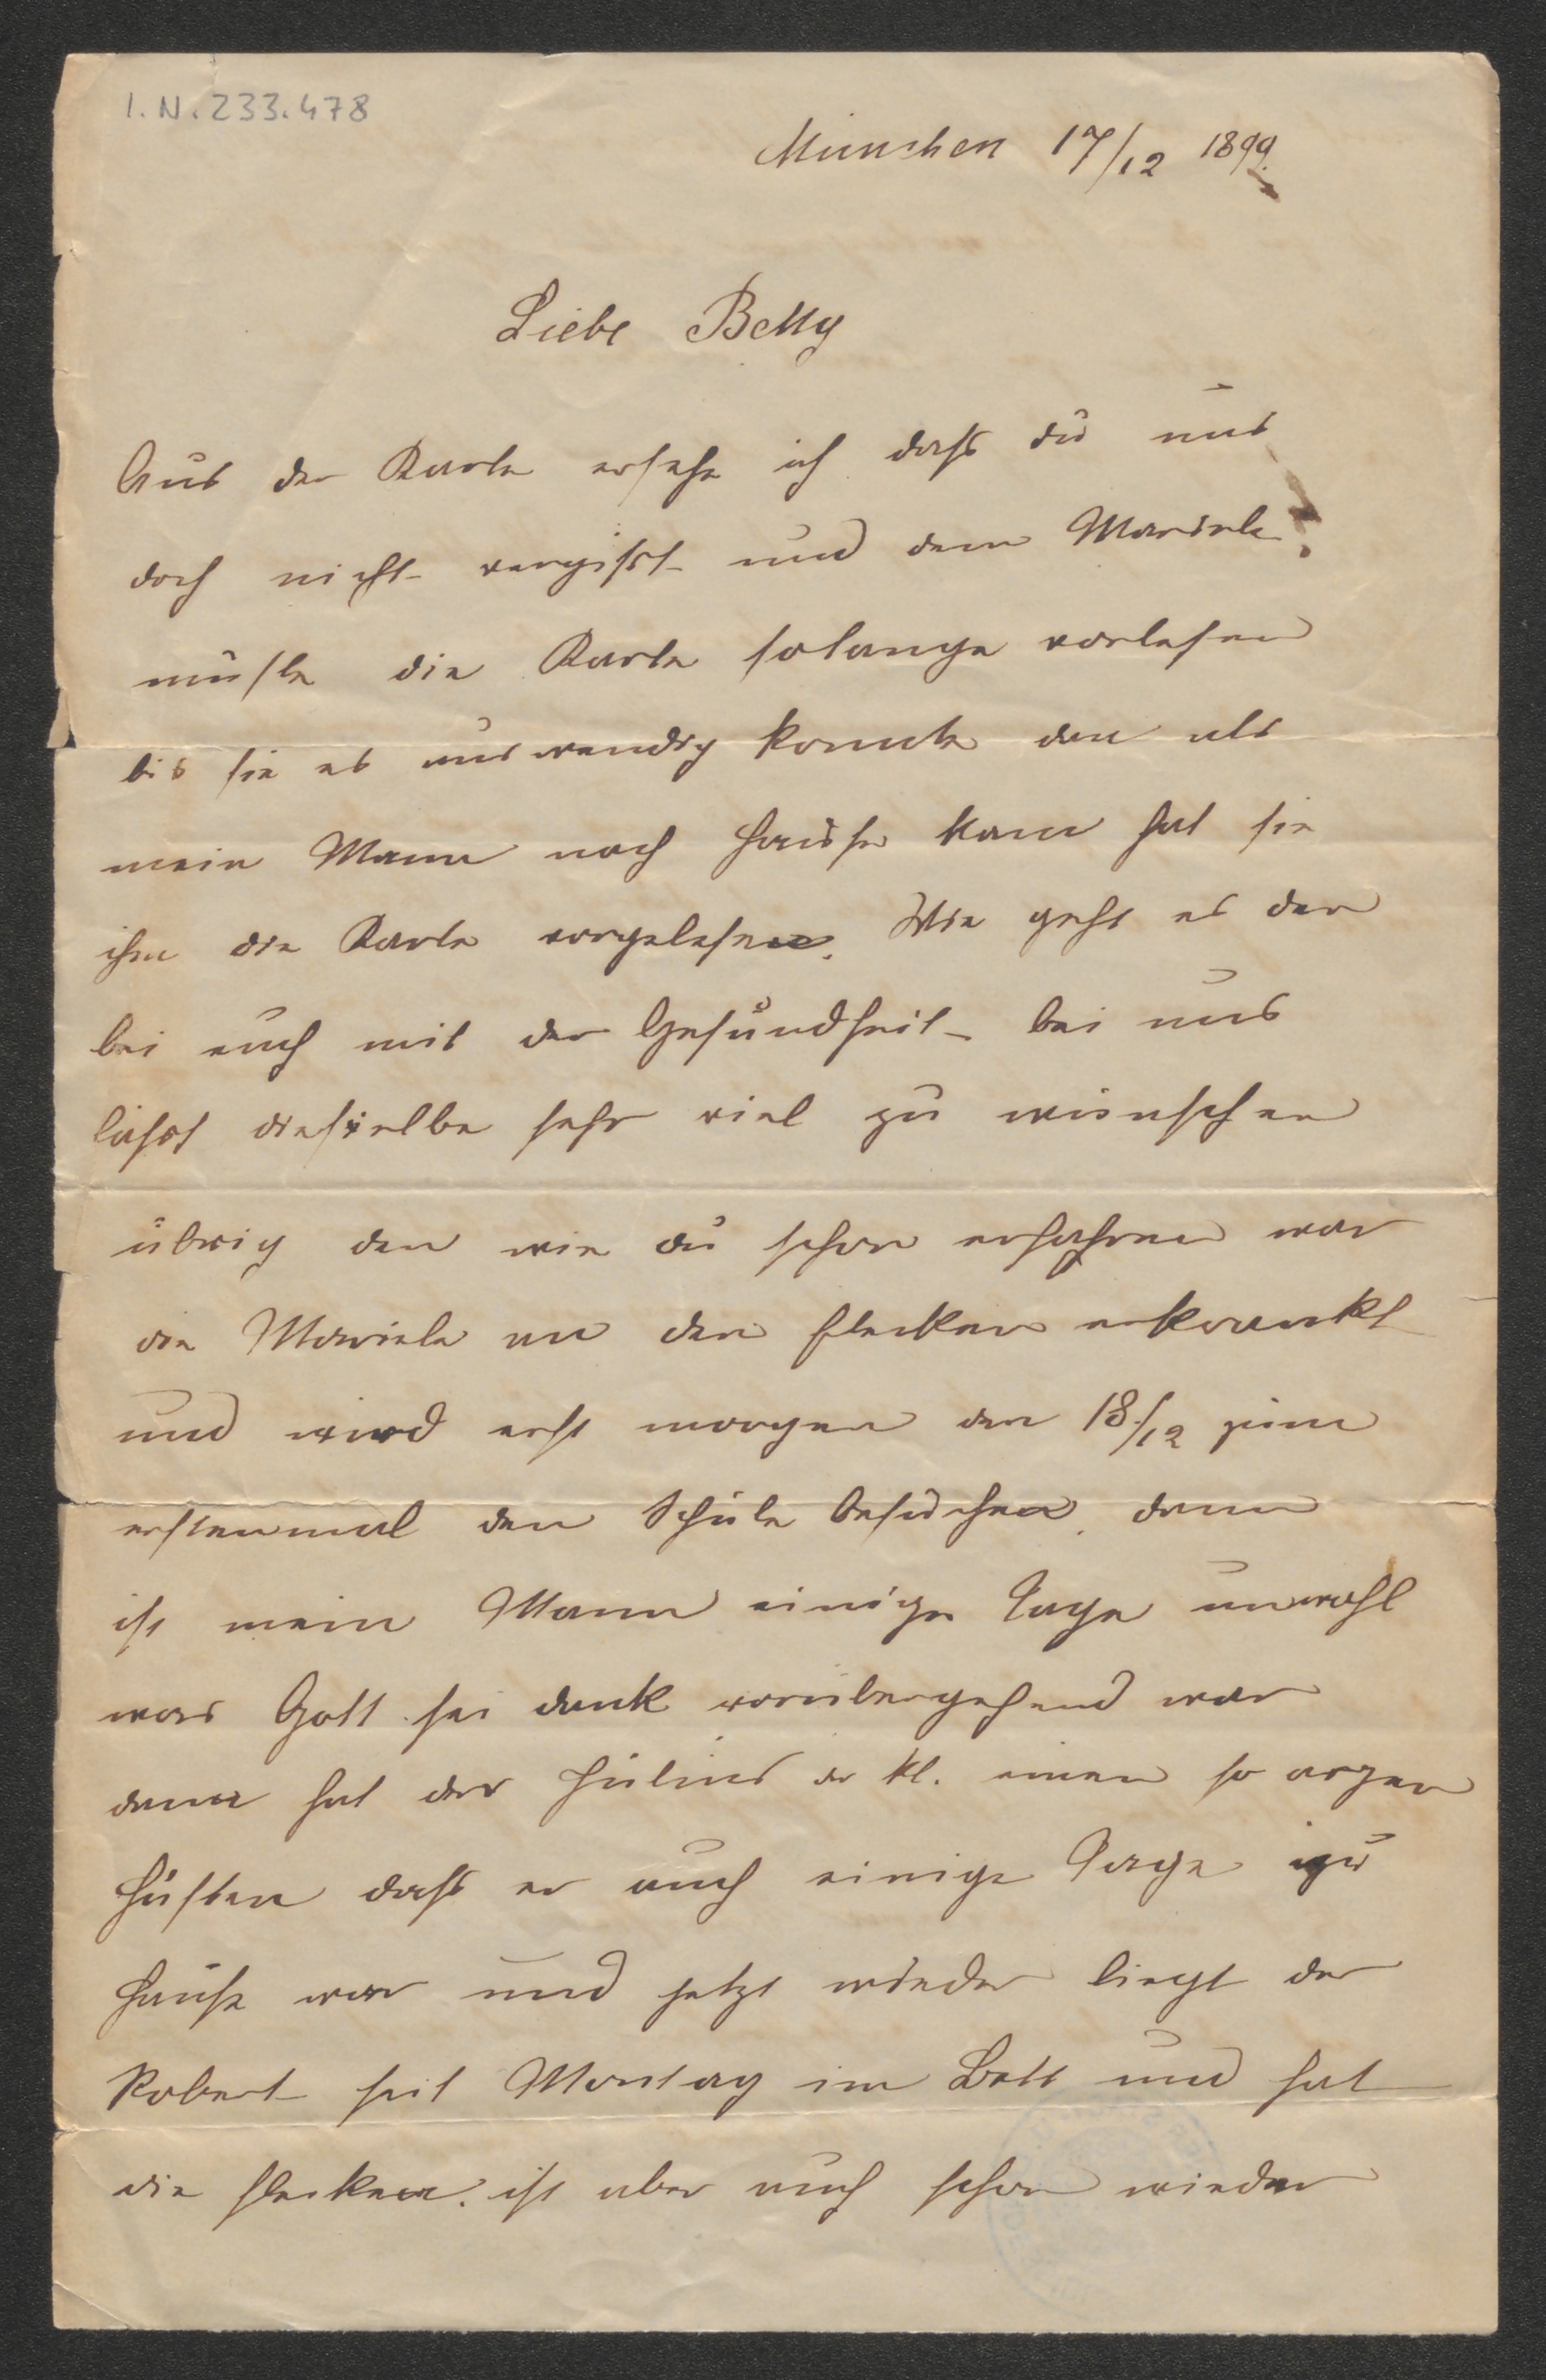 I.N. 233.478
München 17/12 1899.
Liebe Betty
Aus der Karte ersehe ich daß du uns
doch nicht vergißt und dem Mariele
mußte die Karte solange vorlesen
bis sie es auswendig konnte den als
mein Mann nach Hause kam hat sie
ihm die Karte vorgelesen. Wie geht es den
bei euch mit der Gesundheit bei uns
läßt dieselbe sehr viel zu wünschen
übrig den wie du schon erfahren war
die Mariele an den Flecken erkrankt
und wird erst morgen den 18/12 zum
erstenmal den Schule besuchen. dann
ist mein Mann einige Tage unwohl
was Gott sei dank vorübergehend war
dann hat der Julius der kl. einen so argen
Husten daß er auch einige Tage zu
Hause war und jetzt wieder liegt der
Robert seit Montag im Bett und hat
die Flecken. ist aber auch schon wieder